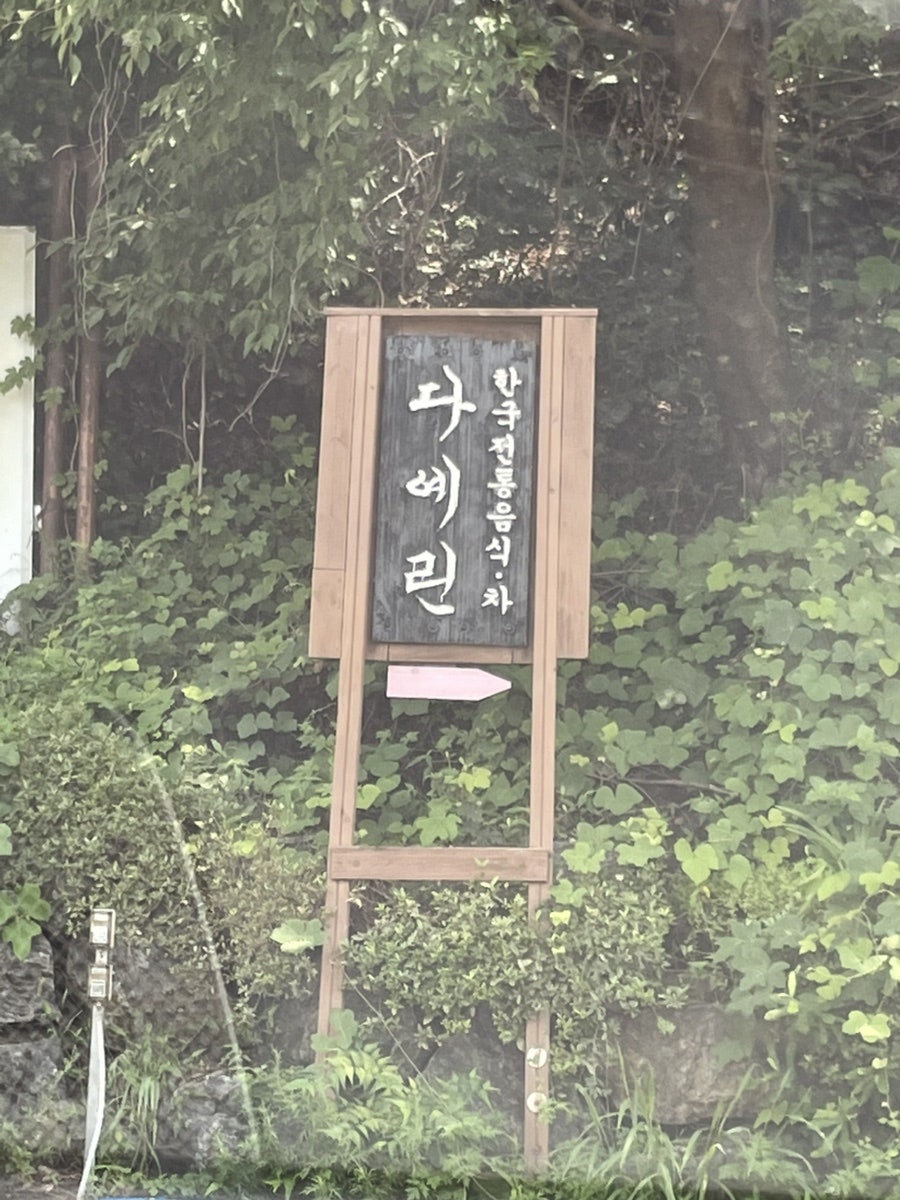 한국전통음식·차
다예린